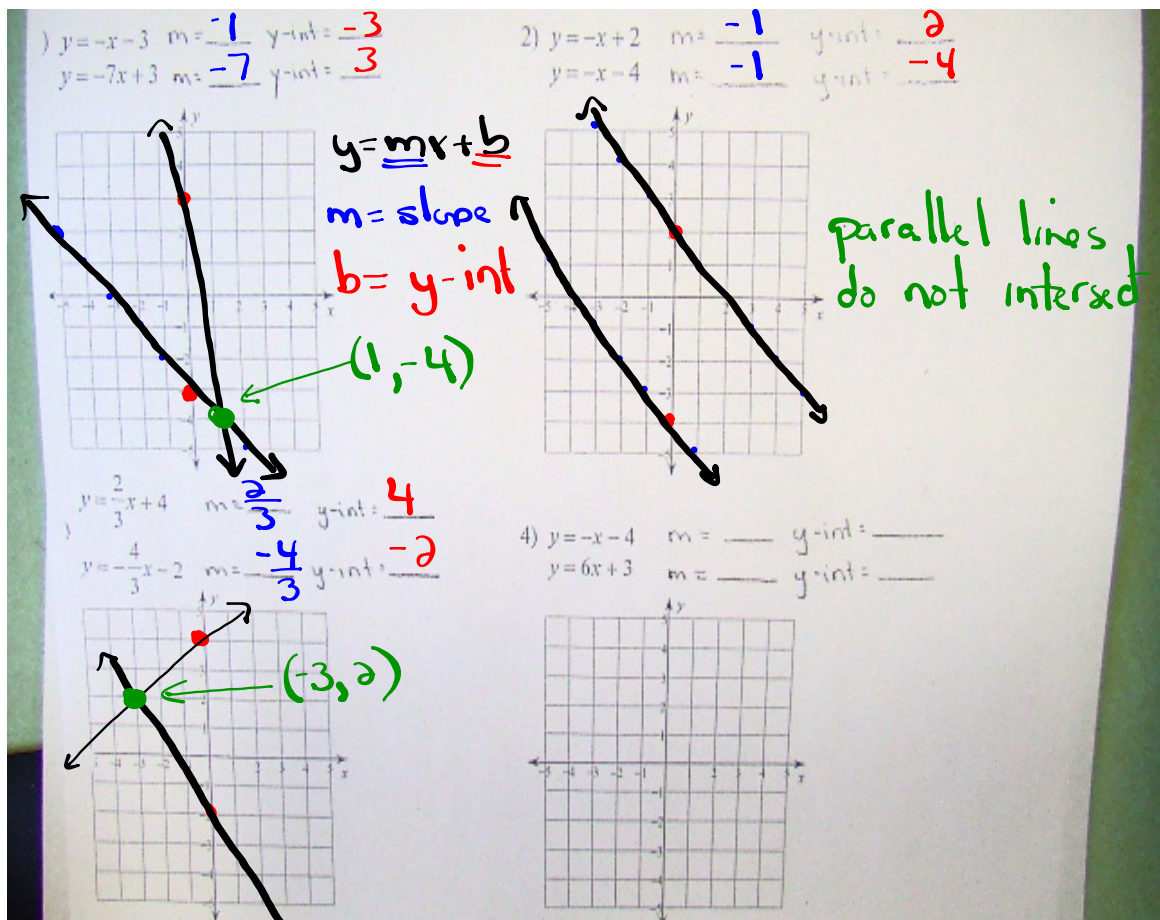 ) y = -x - 3 m = -1 y-int = -3
y = -7x + 3 m = -7 y-int = 3
y = mx + b
m = slope
b = y-int
(1, -4)
2) y = -x + 2 m = -1 y-int = 2
y = -x - 4 m = -1 y-int = -4
parallel lines
do not intersect
) y = 2/3 x + 4 m = 2/3 y-int = 4
y = -4/3 x - 2 m = -4/3 y-int = -2
(-3, 2)
4) y = -x - 4 m = ___ y-int = ___
y = 6x + 3 m = ___ y-int = ___